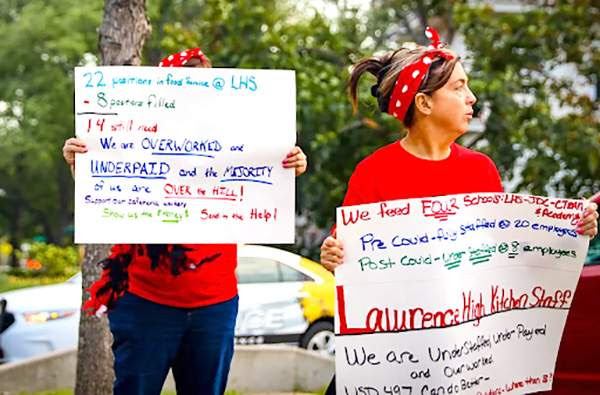 22 positions in food service @ LHS
- 8 positions filled
14 still need
We are OVERWORKED and
UNDERPAID and the MAJORITY
of us are OVER the HILL!
Support our cafeteria workers
Show us the money! Send in the Help!
We feed FOUR Schools: LHS-JDC-CTRAN
& Academy
Pre Covid - fully staffed @ 20 employees
Post Covid - under staffed @ 8 employees
Lawrence High Kitchen Staff
We are Understaffed, Under Played
and Over worked
USD 497 Can do Better -
more than 8!